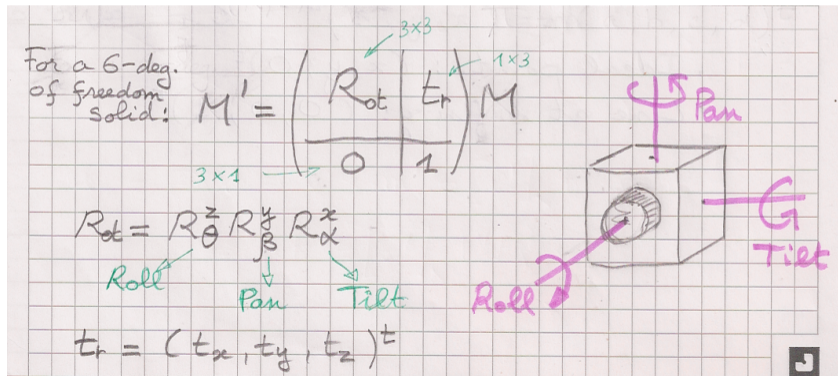 For a 6-deg.
of freedom
solid:
M' = ( Rot | tr ) M
0 | 1
3×3
1×3
3×1
Rot = R^z_θ R^y_β R^x_α
Roll
Pan
Tilt
tr = (tx, ty, tz)^t
Pan
Tilt
Roll